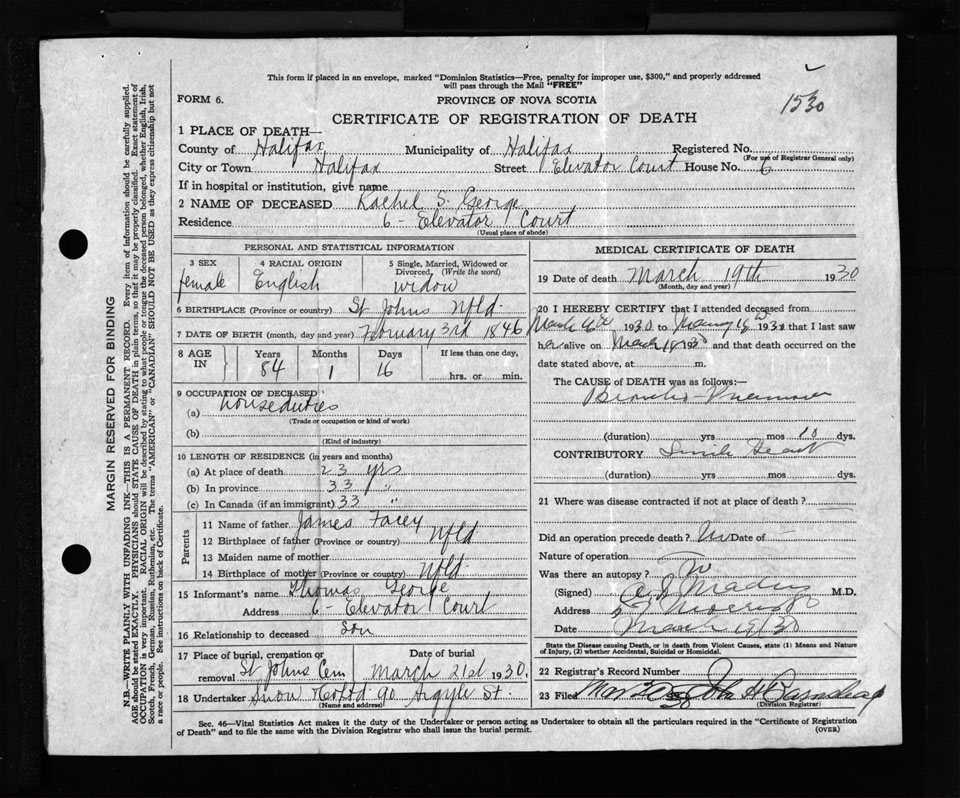 This form if placed in an envelope, marked "Dominion Statistics—Free, penalty for improper use, $300," and properly addressed
will pass through the Mail "FREE"
1530
FORM 6.
PROVINCE OF NOVA SCOTIA
CERTIFICATE OF REGISTRATION OF DEATH
1 PLACE OF DEATH—
County of Halifax Municipality of Halifax Registered No.
(For use of Registrar General only)
City or Town Halifax Street Elevator Court House No. 6
If in hospital or institution, give name
2 NAME OF DECEASED Rachel S. George
Residence 6 - Elevator Court
(Usual place of abode)
PERSONAL AND STATISTICAL INFORMATION
3 SEX 4 RACIAL ORIGIN 5 Single, Married, Widowed or
Divorced, (Write the word)
female English widow
6 BIRTHPLACE (Province or country) St Johns Nfld.
7 DATE OF BIRTH (month, day and year) February 3rd 1846
8 AGE IN Years Months Days If less than one day,
84 1 16 hrs. or min.
9 OCCUPATION OF DECEASED
(a) houseduties
(Trade or occupation or kind of work)
(b)
(Kind of industry)
10 LENGTH OF RESIDENCE (in years and months)
(a) At place of death 23 yrs
(b) In province 33 "
(c) In Canada (if an immigrant) 33 "
Parents
11 Name of father James Facey
12 Birthplace of father (Province or country) Nfld.
13 Maiden name of mother
14 Birthplace of mother (Province or country) Nfld.
15 Informant's name Thomas George
Address 6 - Elevator Court
16 Relationship to deceased Son
17 Place of burial, cremation or removal Date of burial
St Johns Cem March 21st 1930.
18 Undertaker Snow & Co Ltd 90 Argyle St.
(Name and address)
MEDICAL CERTIFICATE OF DEATH
19 Date of death March 19th 1930
(Month, day and year)
20 I HEREBY CERTIFY that I attended deceased from
March 1930 to 193 that I last saw
her alive on March 18 1930 and that death occurred on the
date stated above, at m.
The CAUSE of DEATH was as follows:—
Broncho-Pneumonia
(duration) yrs mos 10 dys.
CONTRIBUTORY Senile Heart
(duration) yrs mos dys.
21 Where was disease contracted if not at place of death?
Did an operation precede death? No Date of —
Nature of operation
Was there an autopsy? No
(Signed) M.D.
Address
Date March 19/30
State the Disease causing Death, or in death from Violent Causes, state (1) Means and Nature
of Injury, (2) whether Accidental, Suicidal or Homicidal.
22 Registrar's Record Number
23 Filed Mar 20 30 John H Barnstead
(Division Registrar)
Sec. 46—Vital Statistics Act makes it the duty of the Undertaker or person acting as Undertaker to obtain all the particulars required in the "Certificate of Registration
of Death" and to file the same with the Division Registrar who shall issue the burial permit.
(OVER)
MARGIN RESERVED FOR BINDING
N.B.—WRITE PLAINLY WITH UNFADING INK—THIS IS A PERMANENT RECORD. Every item of information should be carefully supplied.
AGE should be stated EXACTLY. PHYSICIANS should STATE CAUSE OF DEATH in plain terms, so that it may be properly classified. Exact statement of
OCCUPATION is very important. RACIAL ORIGIN will be described by stating to what people or tongue the deceased person belonged, whether English, Irish,
Scotch, French, German, Russian, Ruthenian, etc. The terms "AMERICAN" or "CANADIAN" SHOULD NOT BE USED as they express citizenship but not
a race or people. See instructions on back of Certificate.